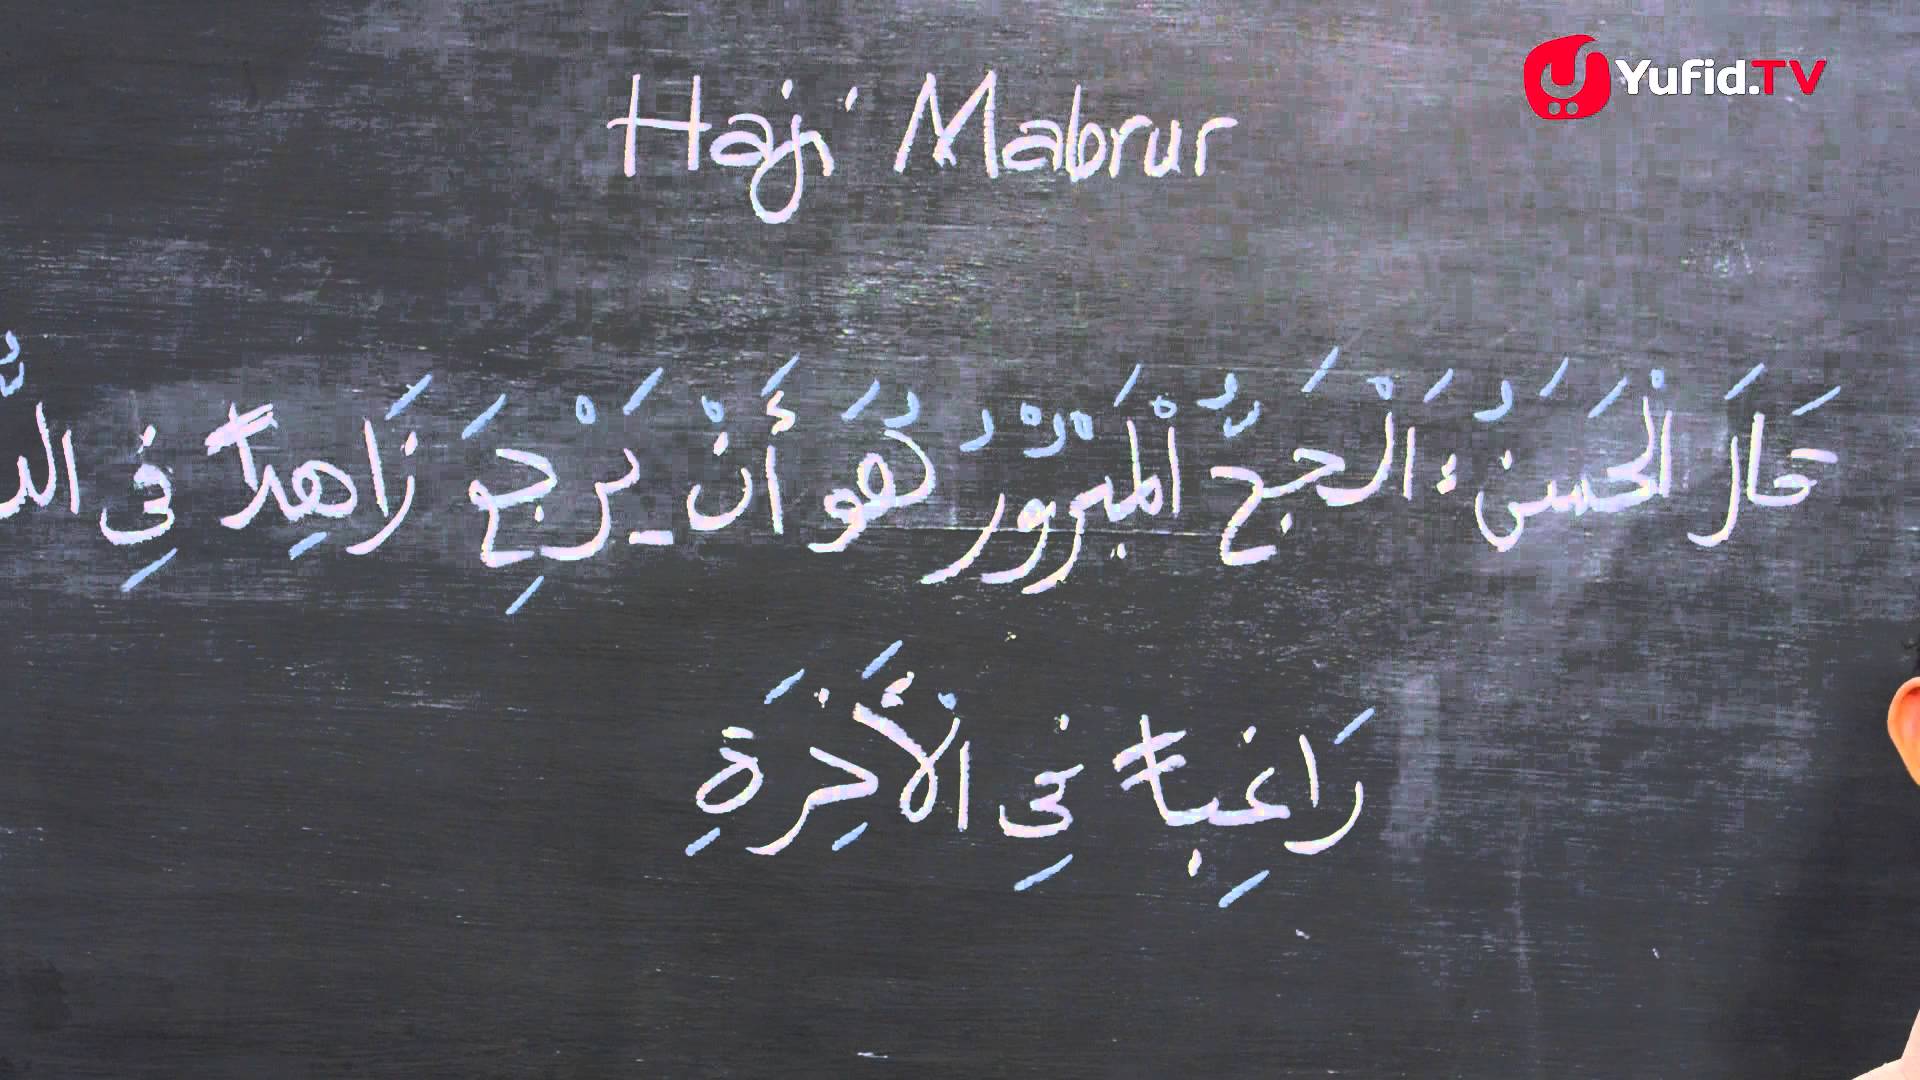 Yufid.TV
Haji Mabrur
قَالَ الْحَسَنُ: اَلْحَجُّ الْمَبْرُوْرُ هُوَ أَنْ يَرْجِعَ زَاهِدًا فِي
رَاغِبًا فِي الْأَخِرَةِ